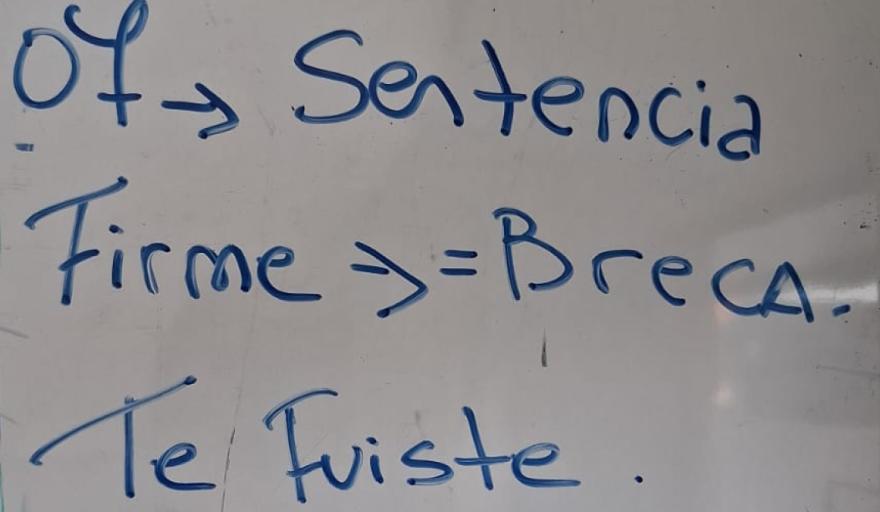 07 → Sentencia
Firme => = Breca.
Te Fuiste.